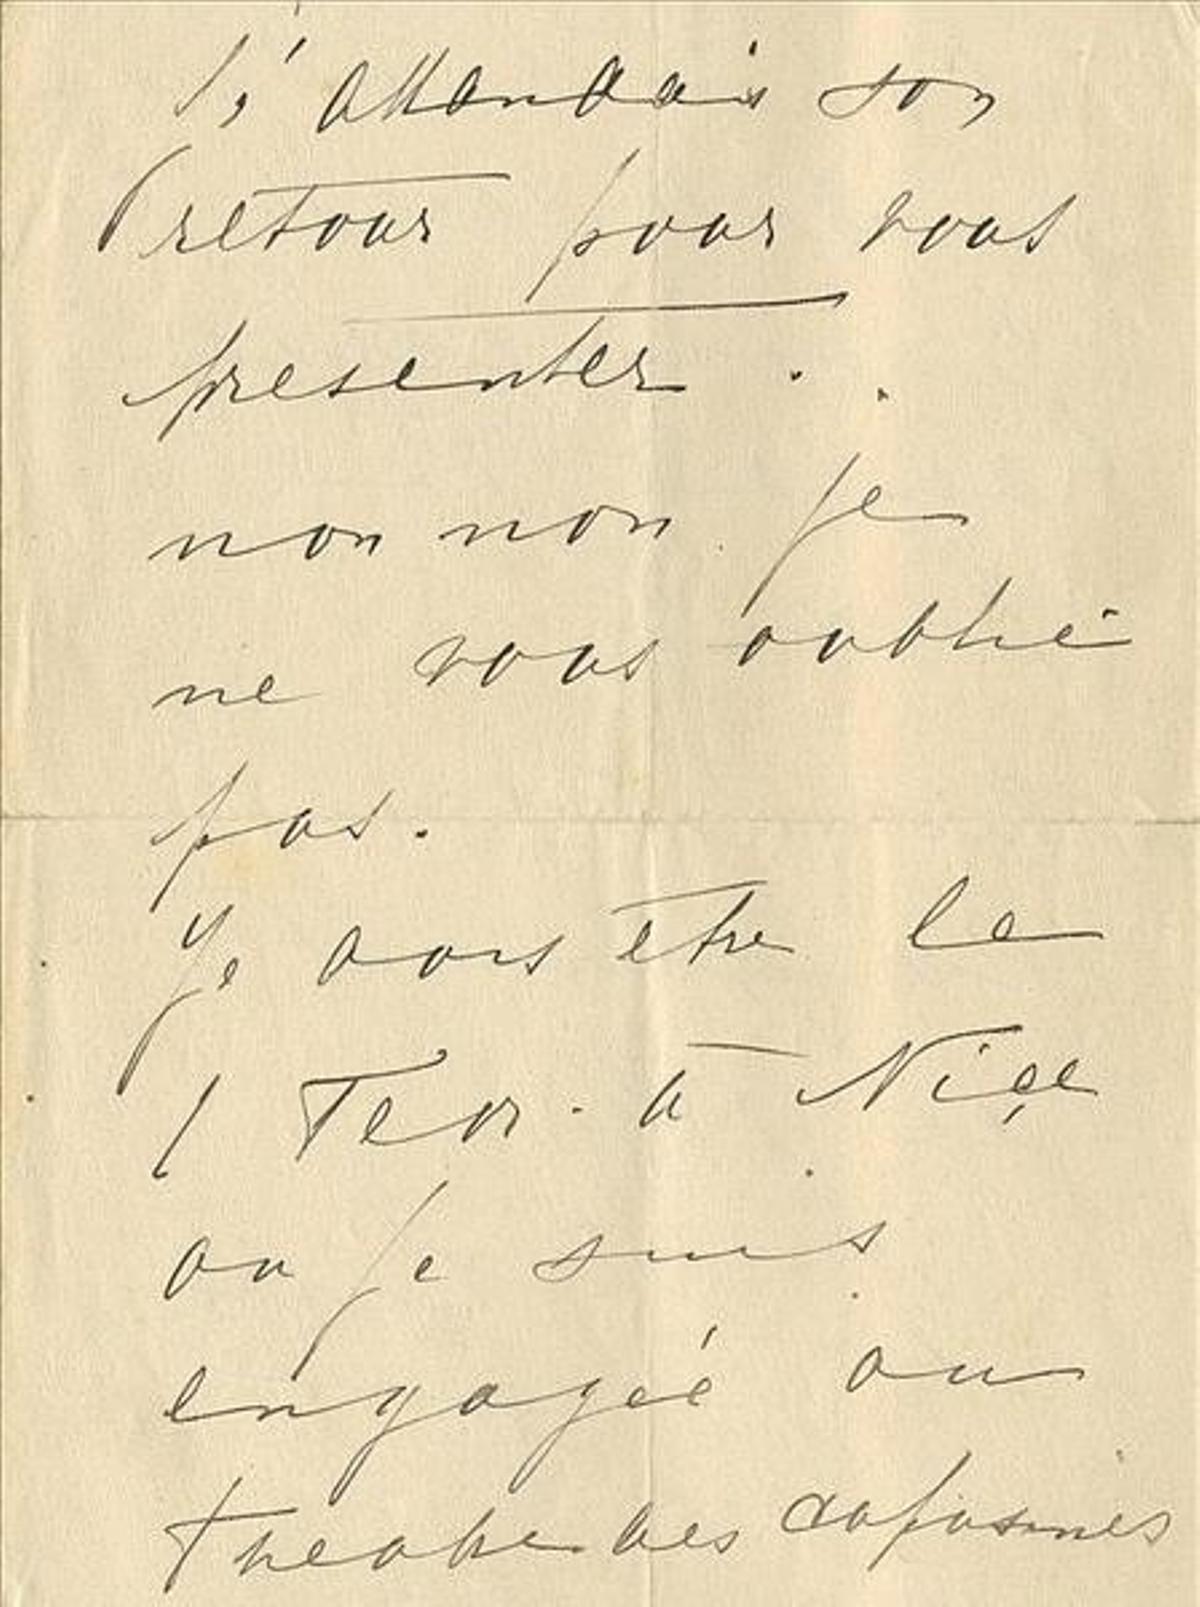 J'attendais son
retour pour vous
presenter . .
non non je
ne vous oublie
pas.
Je dois etre le
1 Fevr. à Nice
ou je suis
engagée au
Theatre des